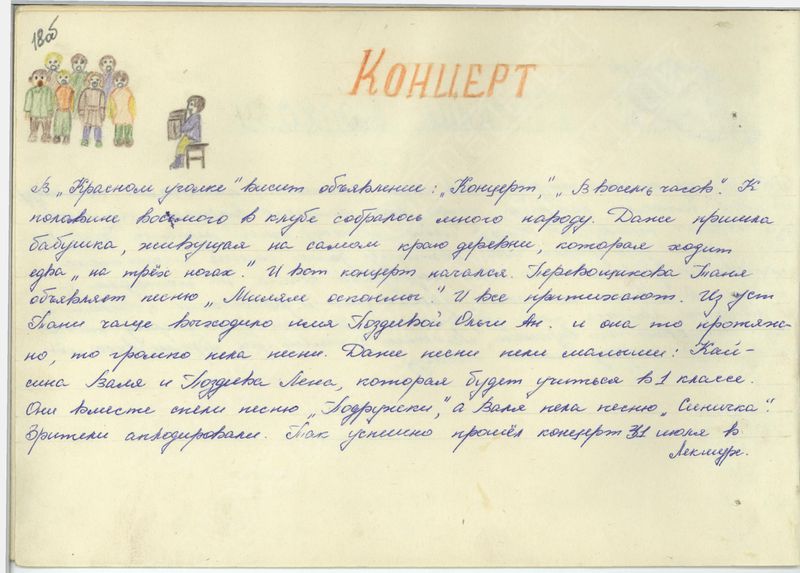 18об
Концерт
В „Красном уголке" висит объявление: „Концерт", „В восемь часов". К
половине восьмого в клубе собралось много народу. Даже пришла
бабушка, живущая на самом краю деревни, которая ходит
едва „на трёх ногах." И вот концерт начался. Перевощикова Таня
объявляет песню „Милям осконмы". И все притихают. Из уст
Тани чаще выходило имя Поздеевой Ольги Ан. и она то протяж-
но, то громко пела песни. Даже песни пели малыши: Кай-
сина Валя и Поздеева Лена, которая будет учиться в 1 классе.
Они вместе спели песню „Подружки", а Валя пела песню „Синичка".
Зрители аплодировали. Так успешно прошёл концерт 31 июля в
Лекшур.